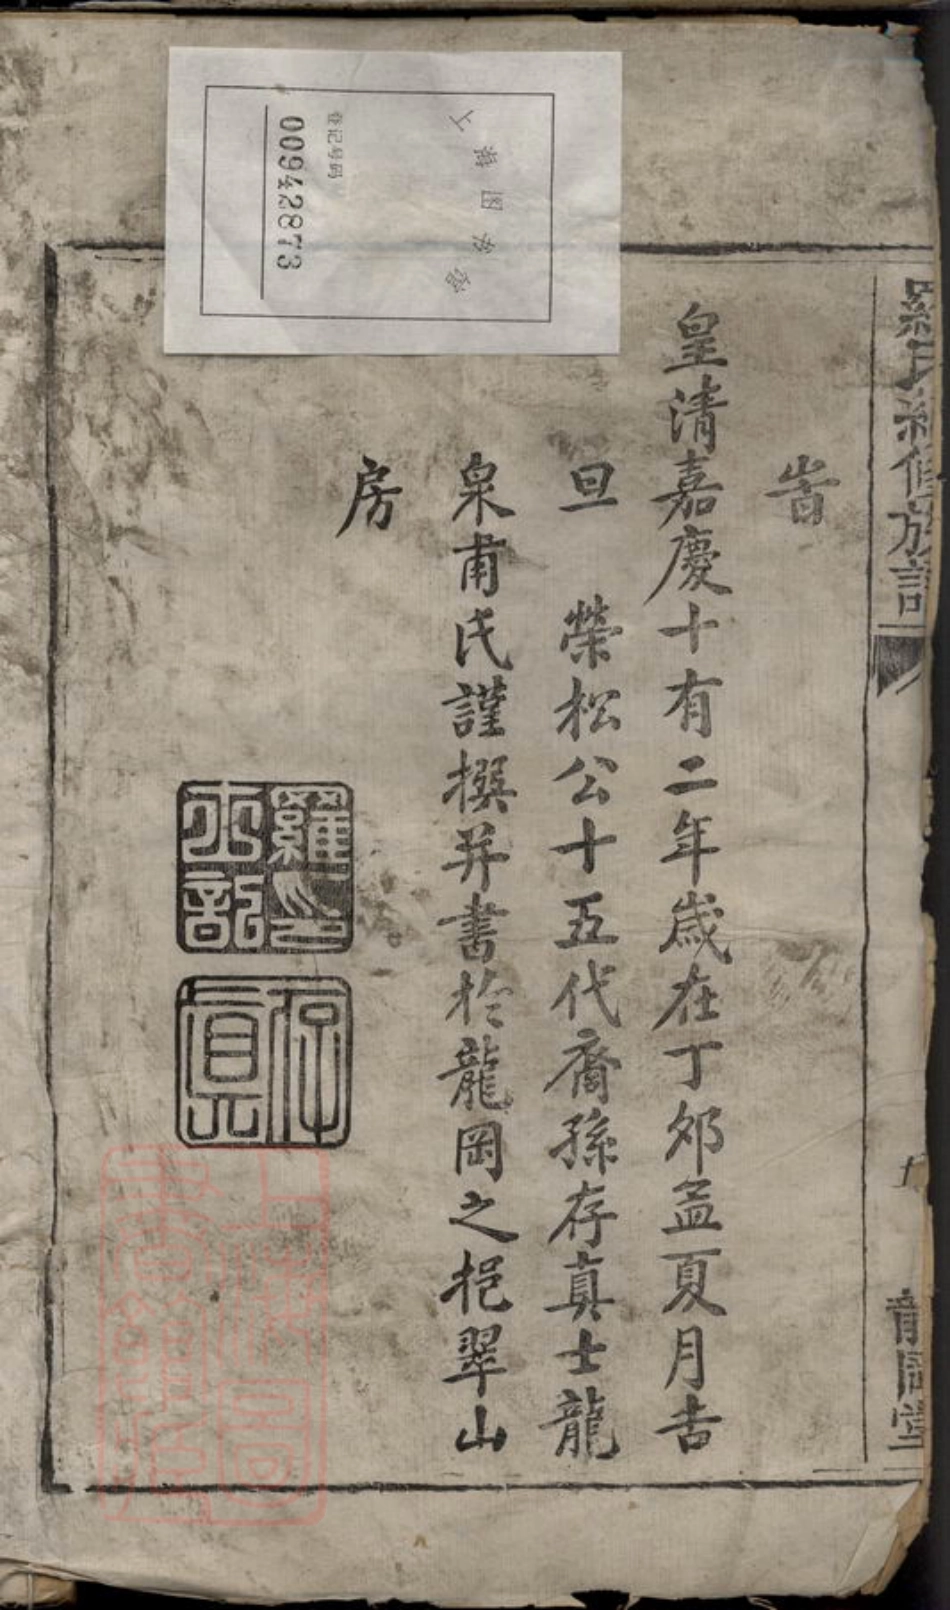 旹
皇清嘉慶十有二年歲在丁夘孟夏月吉
旦 榮松公十五代裔孫存真士龍
泉甫氏謹撰并書於龍岡之挹翠山
房
羅氏續修族譜
龍岡堂
上海图书馆
登记号码
00942873
羅印士龍
存真
上海圖書館藏